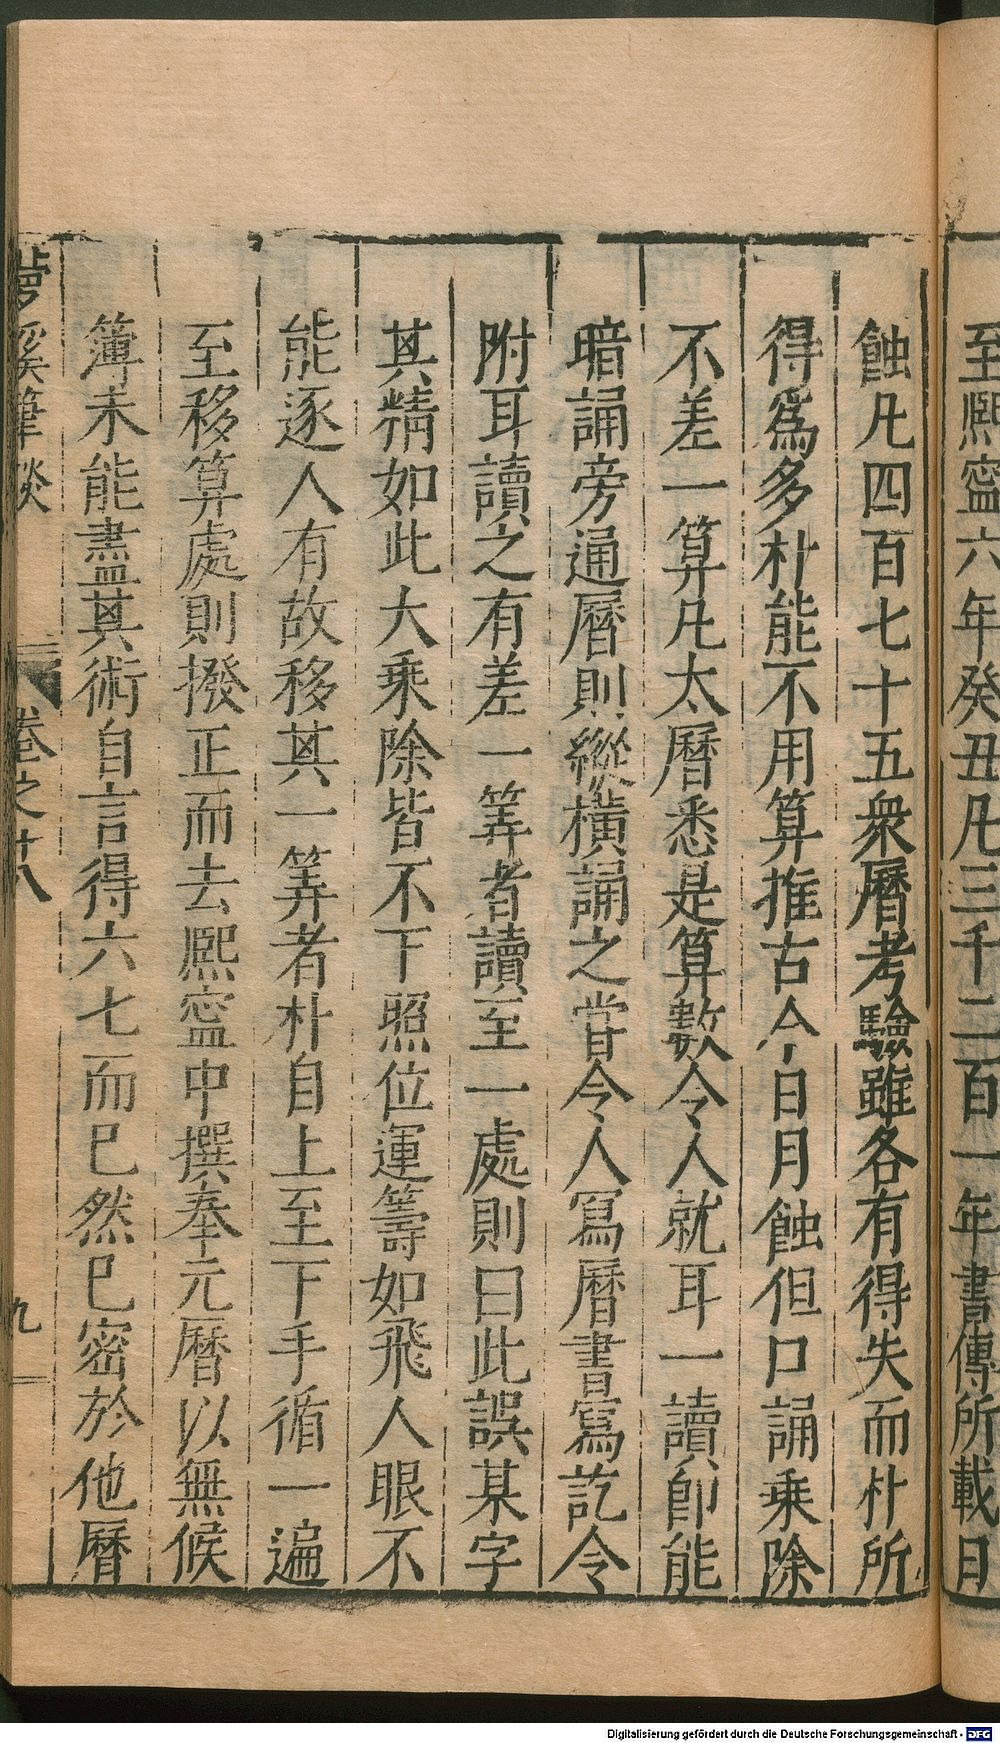 至熙寧六年癸丑凡三千二百一年書傳所載日
蝕凡四百七十五衆曆考驗雖各有得失而朴所
得爲多朴能不用算推古今日月蝕但口誦乘除
不差一算凡大曆悉是算數令人就耳一讀卽能
暗誦旁通曆則縱橫誦之嘗令人寫曆書寫訖令
附耳讀之有差一筭者讀至一處則曰此誤某字
其精如此大乘除皆不下照位運籌如飛人眼不
能逐人有故移其一筭者朴自上至下手循一遍
至移算處則撥正而去熙寧中撰奉元曆以無候
簿未能盡其術自言得六七而已然已密於他曆
夢溪筆談 卷之十八 九
Digitalisierung gefördert durch die Deutsche Forschungsgemeinschaft - DFG